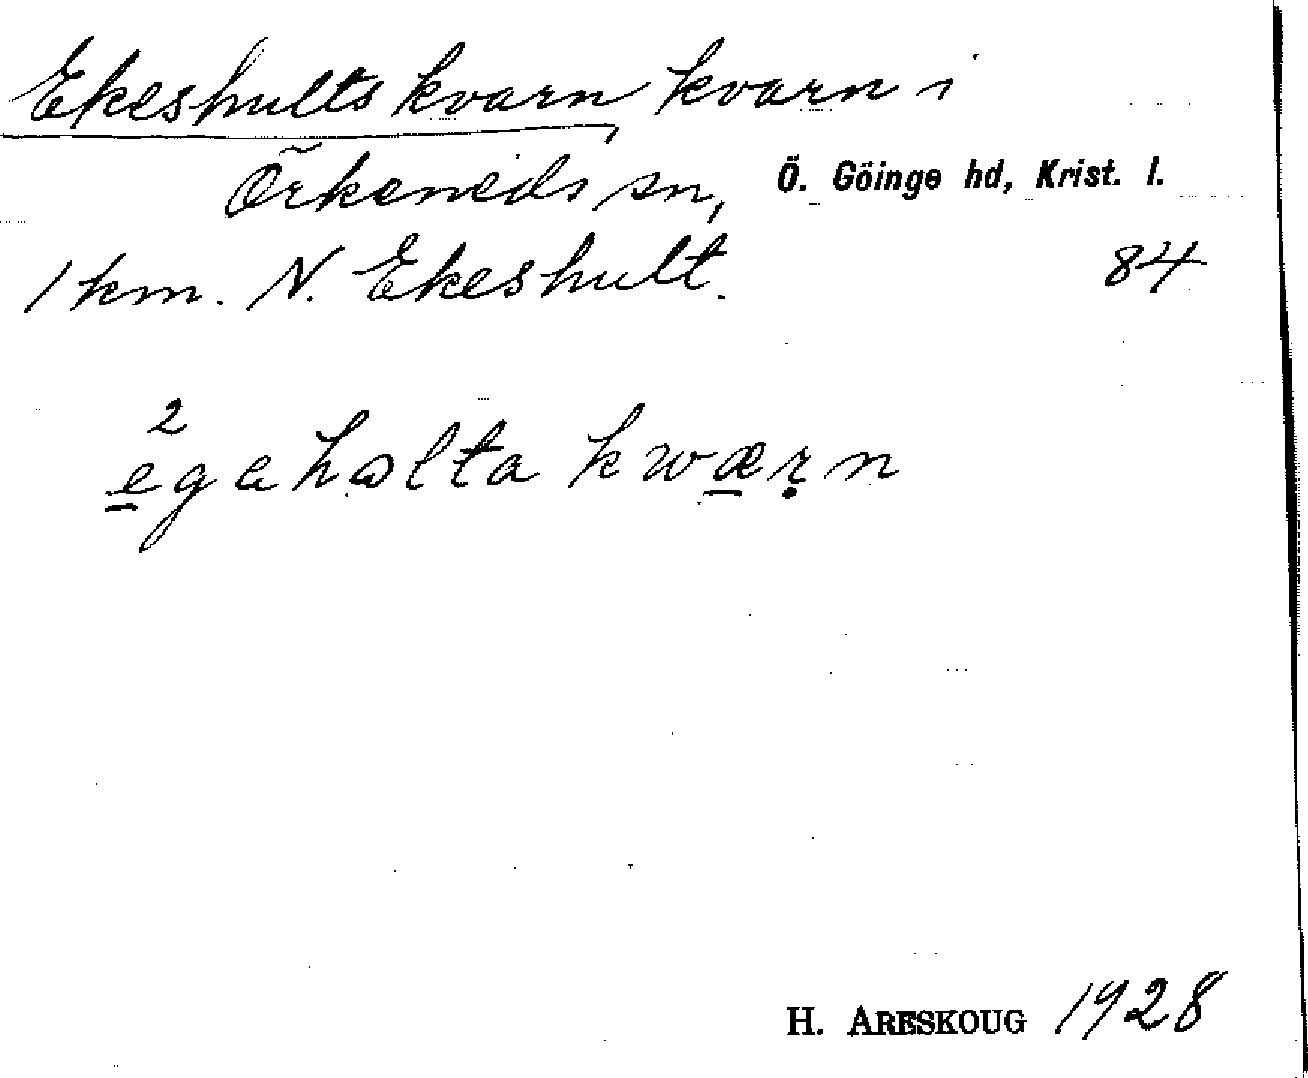 Ekeshults kvarn, kvarn i
Örkeneds sn, Ö. Göinge hd, Krist. l.
1 km. N. Ekeshult. 84
2
e̲gahalta kwæ̲ṛn
H. ARESKOUG 1928